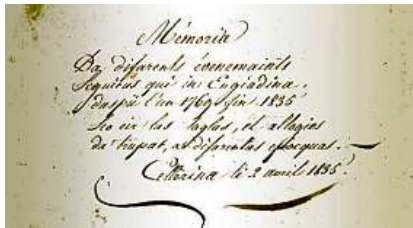 Mémoria
Da difarents évenemaints
sequieus qui in Engiadina,
daspö l'an 1769 fin 1835
sco eir las aglas, et allagias
da täpat, a difarentas epocquas.
Cellerina li 2 avrili 1835.